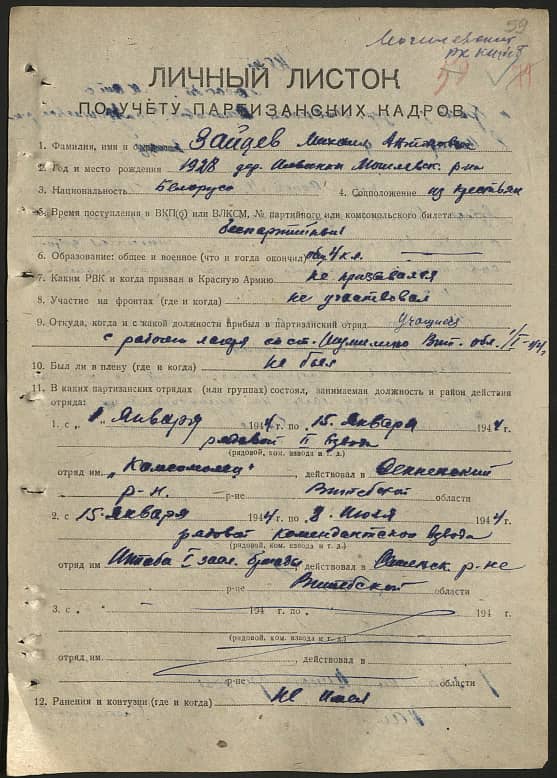 59
ЛИЧНЫЙ ЛИСТОК
ПО УЧЁТУ ПАРТИЗАНСКИХ КАДРОВ
1. Фамилия, имя и Зайцев Михаил
2. Год и место рождения 1928 дер. р-на
3. Национальность Белорус 4. Соцположение из крестьян
5. Время поступления в ВКП(б) или ВЛКСМ, № партийного или комсомольского билета
беспартийный
6. Образование: общее и военное (что и когда окончил) 4 кл.
7. Каким РВК и когда призван в Красную Армию не призывался
8. Участие на фронтах (где и когда) не участвовал
9. Откуда, когда и с какой должности прибыл в партизанский отряд Учащийся
с рабочего лагеря ст. Шумилино Вит. обл.
10. Был ли в плену (где и когда) не был
11. В каких партизанских отрядах (или группах) состоял, занимаемая должность и район действия
отряда:
1. с „1" Января 1944 г. по 15. Января 1944 г.
рядовой II взвода
(рядовой, ком. взвода и т. д.)
отряд им. „Комсомолец" действовал в Сенненский
р-н. р-не Витебской области
2. с 15. Января 1944 г. по 8 Июля 1944 г.
рядовой комендантского взвода
(рядовой, ком. взвода и т. д.)
отряд им. Штаба I бригады, действовал в р-не
р-не Витебской области
3. с 194 г. по 194 г.
(рядовой, ком. взвода и т. д.)
отряд им. , действовал в
р-не области
12. Ранения и контузии (где и когда) Не имел